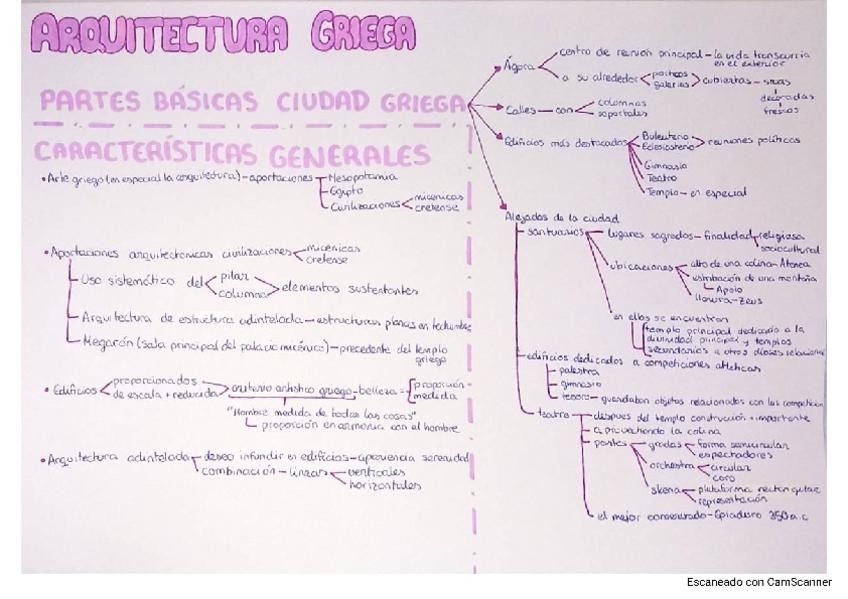 ARQUITECTURA GRIEGA
PARTES BÁSICAS CIUDAD GRIEGA
Ágora
centro de reunion principal - la vida transcurria
en el exterior
a su alrededor
porticos
galerias
cubiertas - stoas
decoradas
frescos
Calles - con
columnas
soportales
Edificios más destacados
Buleuterio
Eclesiasterio
reuniones políticas
Gimnasio
Teatro
Templo - en especial
Alejados de la ciudad
santuarios
lugares sagrados - finalidad
religiosa
sociocultural
ubicaciones
alto de una colina - Atenea
estribación de una montaña
Apolo
llanura - Zeus
en ellos se encuentran
templo principal dedicado a la
divinidad principal y templos
secundarios a otros dioses
edificios dedicados a competiciones atléticas
palestra
gimnasio
tesoro - guardaban objetos relacionados con las competición
teatro
despues del templo construcción + importante
aprovechando la colina
partes
gradas
forma semicircular
espectadores
orchestra
circular
coro
skena
plataforma rectangular
representación
el mejor conservado - Epidauro 350 a.c
CARACTERÍSTICAS GENERALES
• Arte griego (en especial la arquitectura) - aportaciones
Mesopotamia
Egipto
Civilizaciones
micenicas
cretense
• Aportaciones arquitectonicas civilizaciones
micenicas
cretense
Uso sistemático del
pilar
columna
elementos sustentantes
Arquitectura de estructura adintelada - estructuras planas en techumbre
Megarón (sala principal del palacio micénico) - precedente del templo
griego
• Edificios
proporcionados
de escala + reducida
criterio artístico griego - belleza =
proporción
medida
"Hombre medida de todas las cosas"
proporción en armonia con el hombre
• Arquitectura adintelada
deseo infundir en edificios - apariencia serenidad
combinación - lineas
verticales
horizontales
Escaneado con CamScanner